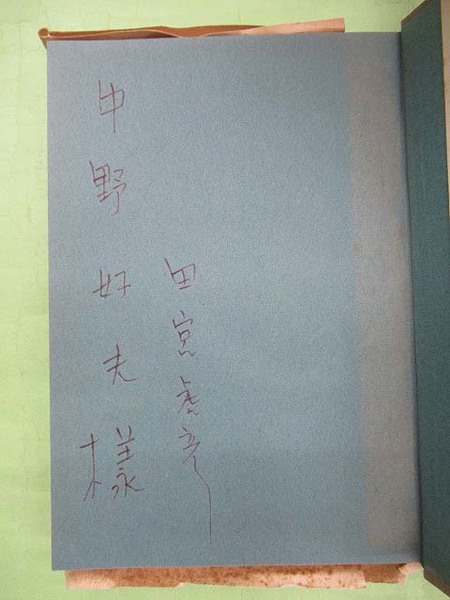 田宮虎彦
中野好夫樣